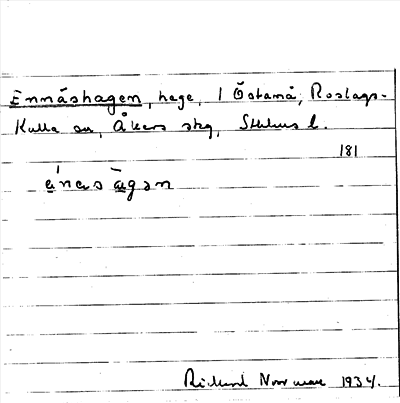 Ennåshagen, hage, i Östanå, Roslags-
Kulla sn, Åkers skg, Sthlms l.
181
Rickard Norrman 1934.